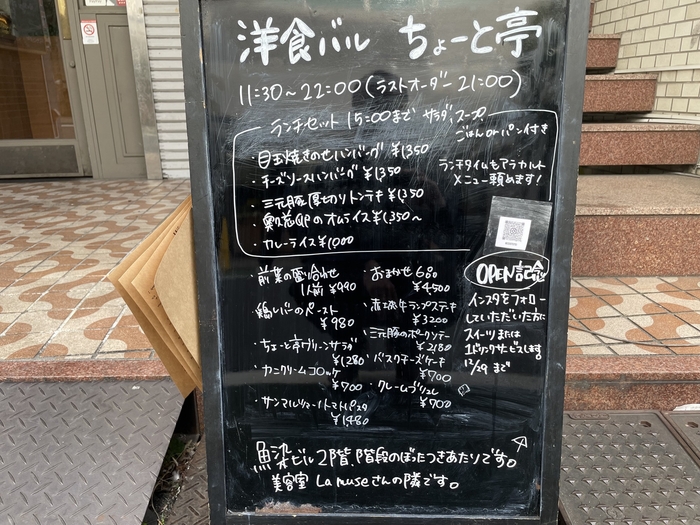 洋食バル ちょーと亭
11:30〜22:00(ラストオーダー 21:00)
ランチセット 15:00まで サラダ、スープ
ごはん or パン付き
・目玉焼きのせハンバーグ ¥1350
・チーズソースハンバーグ ¥1350
・三元豚厚切りトンテキ ¥1350
・奥久慈卵のオムライス ¥1,350〜
・カレーライス ¥1000
ランチタイムもアラカルト
メニュー頼めます!
・前菜の盛り合わせ
1人前 ¥990
・鶏レバーのペースト
¥980
・ちょーと亭グリーンサラダ
¥1,280
・カニクリームコロッケ
¥700
・サンマルツァーノトマトパスタ
¥1,480
・おまかせ6品
¥4500
・赤城牛ランプステーキ
¥3200
・三元豚のポークソテー
¥2180
・バスクチーズケーキ
¥700
・クレームブリュレ
¥700
OPEN記念
インスタをフォロー
していただいた方に
スイーツまたは
1ドリンクサービスします。
12/29 まで
魚染ビル2階、階段のぼったつきあたりです。
美容室 La museさんの隣です。